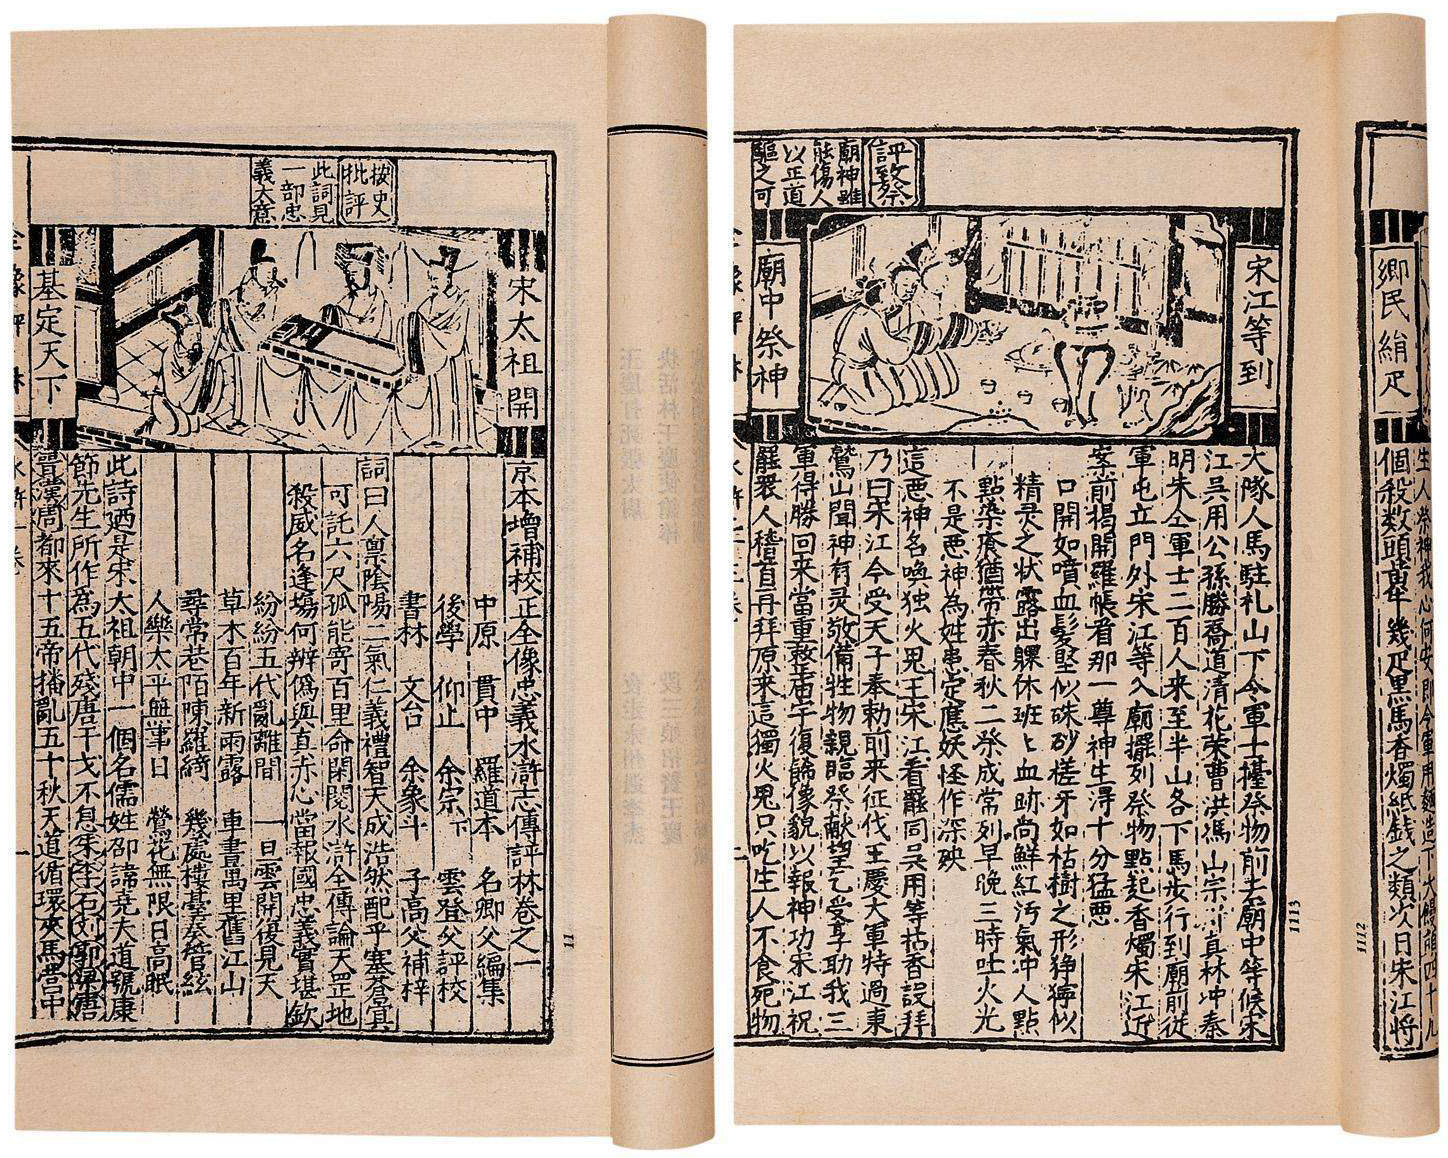 按史
批評
此詞見
一部忠
義大意
宋太祖開
基定天下
京本增補校正全像忠義水滸志傳評林卷之一
中原 貫中 羅道本 名卿父編集
後學 仰止 余宗下 雲登父評校
書林 文台 余象斗 子高父補梓
詞曰人禀陰陽二氣仁義禮智天成浩然配乎塞蒼冥
可託六尺孤能寄百里命閑閱水滸全傳論天罡地
殺威名逢塲何辨僞與真赤心當報國忠義實堪欽
紛紛五代亂離間 一旦雲開復見天
草木百年新雨露 車書萬里舊江山
尋常巷陌陳羅綺 幾處樓臺奏管絃
人樂太平無事日 鶯花無限日高眠
此詩廼是宋太祖朝中一個名儒姓邵諱堯夫道號康
節先生所作爲五代殘唐干戈不息朱李石劉郭梁唐
晋漢周都來十五帝播亂五十秋天道循環夾馬營中
全像評林
水滸一卷
一
11
評致祭
廟神雖
能傷人
以正道
驅之可
宋江等到
廟中祭神
大隊人馬駐札山下令軍士擡祭物前去廟中等候宋
江吳用公孫勝喬道清花荣曹洪馮山宗川真林冲秦
明朱仝軍士二百人来至半山各下馬步行到廟前従
軍屯立門外宋江等入廟擺列祭物點起香燭宋江近
案前揭開羅帳看那一尊神生淂十分猛惡
口開如噴血髮堅似硃砂槎牙如枯樹之形狰獰似
精灵之状露出躶体班上血跡尚鮮紅汚氣冲人點
點染瘡猶帶赤春秋二祭成常列早晚三時吐火光
不是惡神為姓患定應妖怪作深殃
這惡神名喚独火鬼王宋江看罷同吳用等拈香設拜
乃曰宋江今受天子奉勅前来征伐王慶大軍特過東
鷲山聞神有灵敬備牲物親臨祭献望乞受享助我三
軍得勝回来當重整廟宇復餙像貌以報神功宋江祝
罷衆人稽首再拜原来這獨火鬼只吃生人不食死物
全像評林
1113
1112
鄉民絹疋
生人祭神我心何安即令軍用麵造下大饅頭四十九
個殺数頭黃牛幾疋黑馬香燭紙錢之類次日宋江將